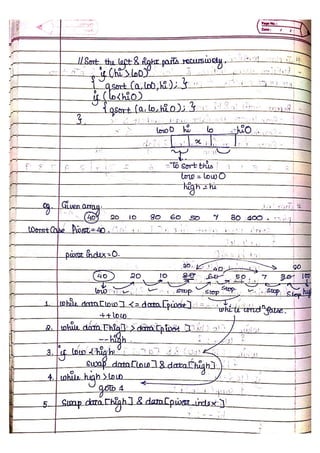 Page No.:
Date: / /
//Sort the left & right parts recursively.
if (hi > lo0)
{ qsort (a, lo0, hi); }
if (lo<hi0)
{ qsort (a, lo, hi0); }
}
low0 hi lo hi0
x
To sort this
low = low0
high = hi
eg. Given array
40 20 10 80 60 50 7 30 100.
Worst Case Pivot=40.
pivot index=0.
40 20 10 60 50 7 30
low stop swap stop stop swap stop high
1. While data[low] <= data[pivot]
++low
2. while data[high] > data[pivot]
--high
3. if low < high
swap data[low] & data[high]
4. while high > low
goto 1
5. Swap data[high] & data[pivot_index]